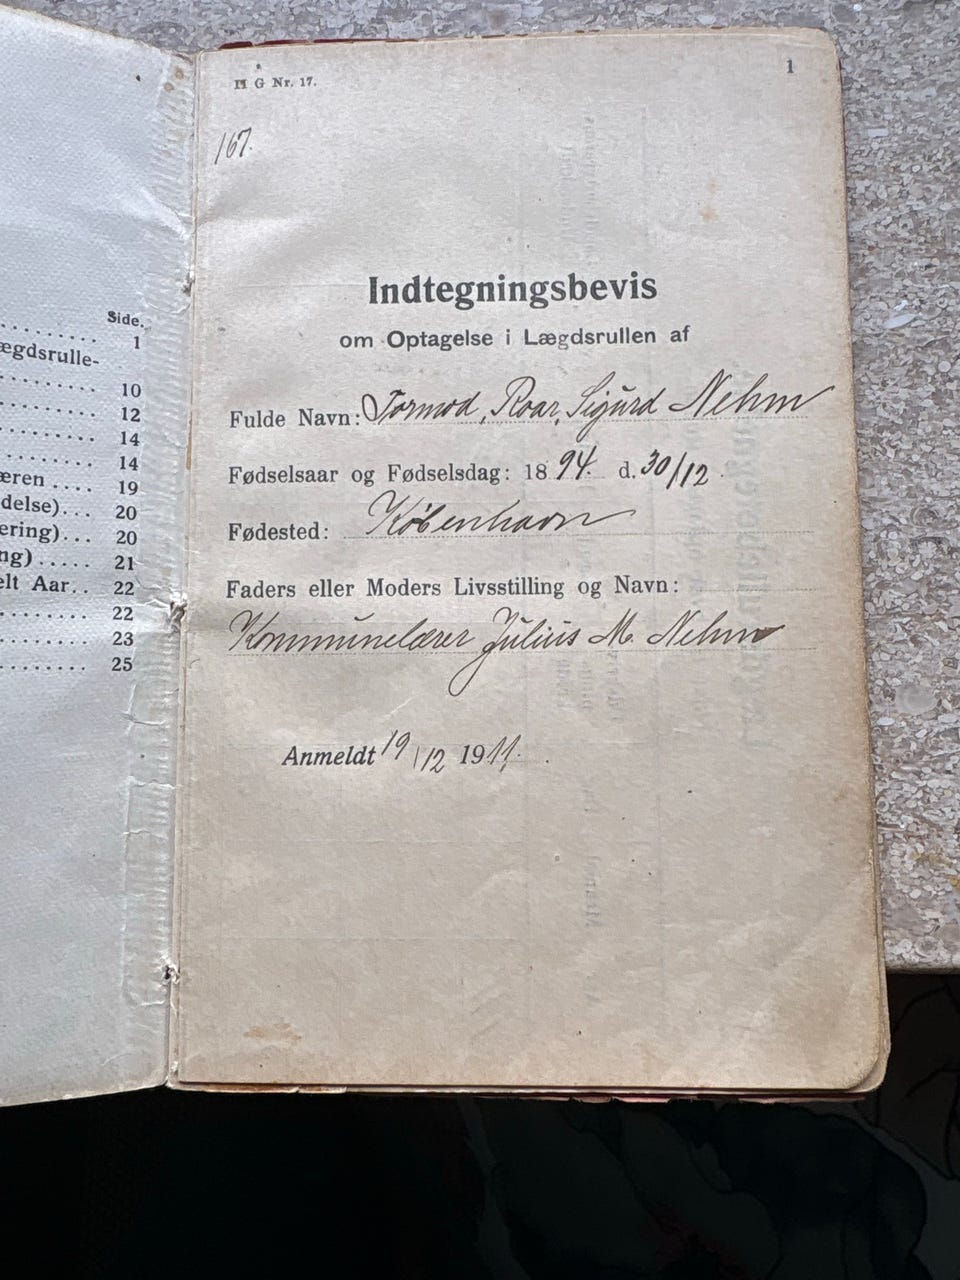 Side.
1
ægdsrulle-
10
12
14
14
æren .... 19
delse)... 20
ering)... 20
ng) ..... 21
elt Aar.. 22
22
23
25
G Nr. 17.
1
167.
Indtegningsbevis
om Optagelse i Lægdsrullen af
Fulde Navn: Tormod, Roar, Sigurd Nehm
Fødselsaar og Fødselsdag: 1894. d. 30/12
Fødested: København
Faders eller Moders Livsstilling og Navn:
Kommunelærer Julius M. Nehm
Anmeldt 19/12 1911.